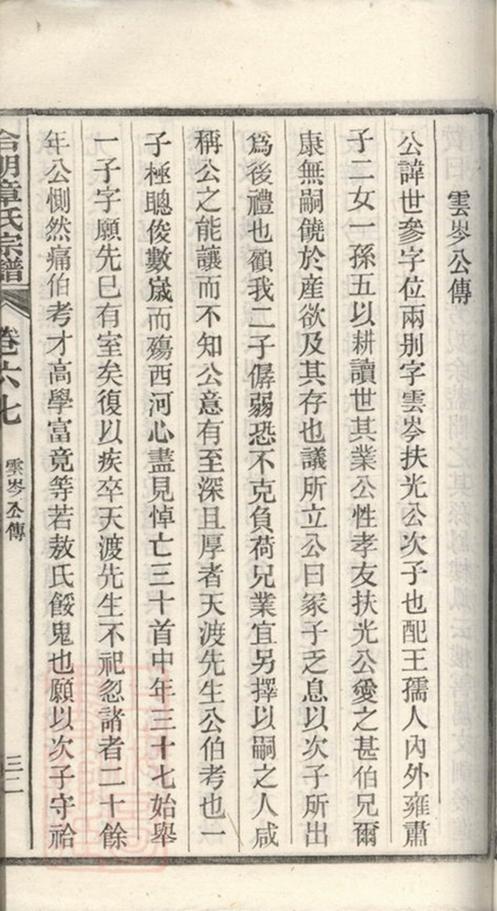 雲岑公傳
公諱世參字位兩別字雲岑扶光公次子也配王孺人內外雍肅
子二女一孫五以耕讀世其業公性孝友扶光公愛之甚伯兄爾
康無嗣饒於產欲及其存也議所立公曰冢子乏息以次子所出
爲後禮也顧我二子孱弱恐不克負荷兄業宜另擇以嗣之人咸
稱公之能讓而不知公意有至深且厚者天渡先生公伯考也一
子極聰俊數歲而殤西河心盡見悼亡三十首中年三十七始舉
一子字願先已有室矣復以疾卒天渡先生不祀忽諸者二十餘
年公惻然痛伯考才高學富竟等若敖氏餒鬼也願以次子守祫
合明章氏宗譜
卷六七
雲岑公傳
三二